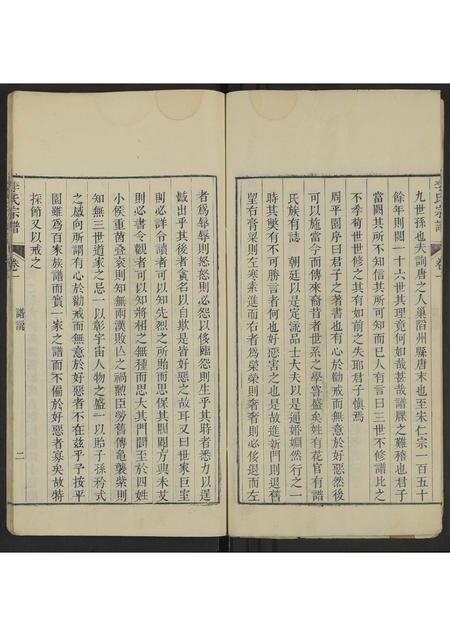 九世孫也夫詢唐之人巢滔州縣唐末也至宋仁宗一百五十
餘年則閱一十六世其理竟何如哉甚哉譜牒之難稽也君子
當闕其所不知信其所可知而已人有言曰三世不修譜比之
不孝苟世世修之其有如前之失耶君子慎焉
周平園序曰君子之著書也有心於勸戒而無意於好惡然後
可以施當今而傳來裔昔者世系之學嘗盛矣姓有花官有譜
氏族有誌 朝廷以是定流品士大夫以是通婚姻然行之一
時其弊有不可勝言者何也好惡害之也是故進新門則退舊
望右膏粱則左寒素進而右者為榮榮則夸者則必侈退而左
李氏宗譜
卷一
譜說
二
者為辱辱則怒怒則必怨以侈臨怨則生乎其時者悉力以逞
憾出乎其後者貪名以自欺是皆好惡之故耳又曰世家巨室
則必詳令譜者可以知先烈之所貽而思保其閥閱方興未艾
則必書令觀者可以知將相之無種而思大其門閭至於四姓
小侯重茵疊衮則知無兩漢敗亾之禍勳臣勞舊傳龜襲紫則
知無三世道家之忌一以彰宇宙人物之盛一以貽子孫矜式
之感向所謂有心於勸戒而無意於好惡者不在茲乎予按平
園雖為百家族譜而實一家之譜而不偏於好惡者寡矣故特
採節又以戒之
李氏宗譜
卷一